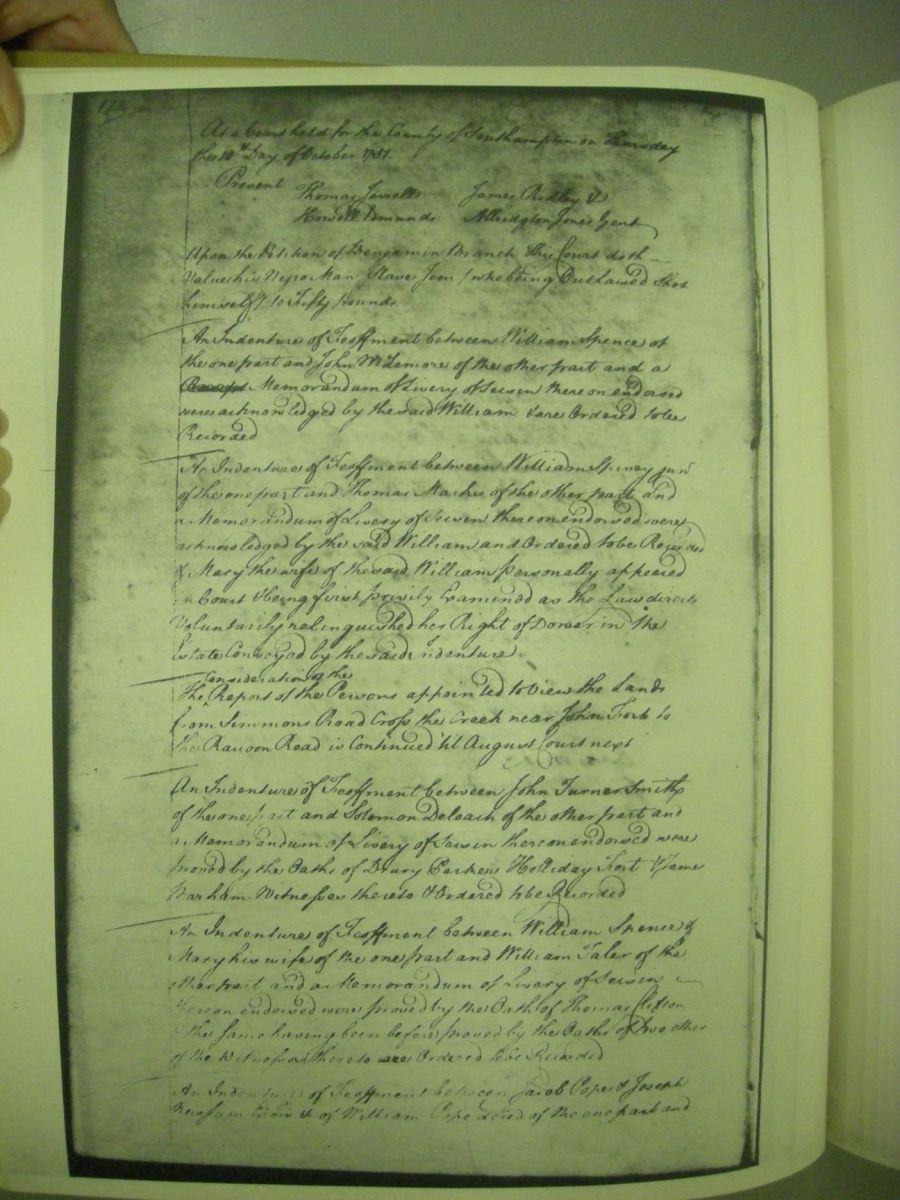 172
At a Court held for the County of Southampton on Thursday
the 10th Day of October 1751.
Present
Thomas Jarrell James Ridley &
Howell Edmunds Albridgton Jones Gent
Upon the Petition of Benjamin Branch this Court doth
Value his Negro Man Slave Jem (who being Outlawed Shot
himself) to Fifty Pounds
An Indenture of Feoffment between William Spence of
the one part and John McLemore of the other part and a
Memorandum of Livery of Seisin thereon endorsed
were acknowledged by the said William & are Ordered to be
Recorded
An Indenture of Feoffment between William Spivey junr
of the one part and Thomas Marks of the other part and
a Memorandum of Livery of Seisin thereon endorsed were
acknowledged by the said William and Ordered to be Recorded
& Mary the wife of the said William personally appeared
in Court & being first privily Examined as the Law directs
Voluntarily relinquished her Right of Dower in the
Estate Conveyed by the said Indenture
Consideration of the
The Report of the Persons appointed to view the Lands
from Simmons Road Cross the Creek near John Fort's to
the Racoon Road is Continued til August Court next
An Indenture of Feoffment between John Turner Smith
of the one part and Solomon Deloach of the other part and
a Memorandum of Livery of Seisin thereon endorsed were
proved by the Oaths of Drury Parker Holliday Fort & James
Barham Witnesses thereto & Ordered to be Recorded
An Indenture of Feoffment between William Spence &
Mary his wife of the one part and William Taler of the
other part and a Memorandum of Livery of Seisin
thereon endorsed were proved by the Oath of Thomas Clifton
& the same having been before proved by the Oaths of Two other
of the Witnesses thereto are Ordered to be Recorded
An Indenture of Feoffment between Jacob Cope & Joseph
of William Cope of the one part and